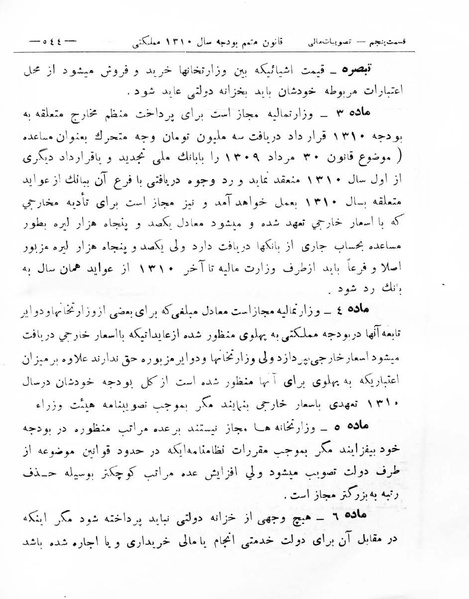 قسمت پنجم — تصویبات مالی    قانون متمم بودجه سال ۱۳۱۰ مملکتی    — ٥٤٤ —
تبصره - قیمت اشیائیکه بین وزارتخانها خرید و فروش میشود از محل
اعتبارات مربوطه خودشان باید بخزانه دولتی عاید شود.
ماده ۳ - وزارتمالیه مجاز است برای پرداخت منظم مخارج متعلقه به
بودجه ۱۳۱۰ قرار داد دریافت سه ملیون تومان وجه متحرك بعنوان مساعده
( موضوع قانون ۳۰ مرداد ۱۳۰۹ را بابانك ملی تجدید و یاقرارداد دیگری
از اول سال ۱۳۱۰ منعقد نماید و رد وجوه دریافتی با فرع آن ببانك از عواید
متعلقه بسال ۱۳۱۰ بعمل خواهد آمد و نیز مجاز است برای تأدیه مخارجی
که با اسعار خارجی تعهد شده و میشود معادل یکصد و پنجاه هزار لیره بطور
مساعده بحساب جاری از بانکها دریافت دارد ولی یکصد و پنجاه هزار لیره مزبور
اصلا و فرعاً باید ازطرف وزارت مالیه تا آخر ۱۳۱۰ از عواید همان سال به
بانك رد شود .
ماده ٤ - وزارتمالیه مجاز است معادل مبلغی که برای بعضی از وزارتخانهاودوایر
تابعه آنها دربودجه مملکتی به پهلوی منظور شده ازعایداتیکه بااسعار خارجی دریافت
میشود اسعار خارجی بپردازد ولی وزارتخانها ودوایر مزبوره حق ندارند علاوه بر میزان
اعتباریکه به پهلوی برای آنها منظور شده است از کل بودجه خودشان درسال
۱۳۱۰ تعهدی باسعار خارجی بنمایند مگر بموجب تصویبنامه هیئت وزراء
ماده ٥ - وزارتخانه ها مجاز نیستند برعده مراتب منظوره در بودجه
خود بیفزایند مگر بموجب مقررات نظامنامه‌ایکه در حدود قوانین موضوعه از
طرف دولت تصویب میشود ولی افزایش عده مراتب کوچکتر بوسیله حذف
رتبه به بزرگتر مجاز است.
ماده ٦ - هیچ وجهی از خزانه دولتی نباید پرداخته شود مگر اینکه
در مقابل آن برای دولت خدمتی انجام یا مالی خریداری و یا اجاره شده باشد